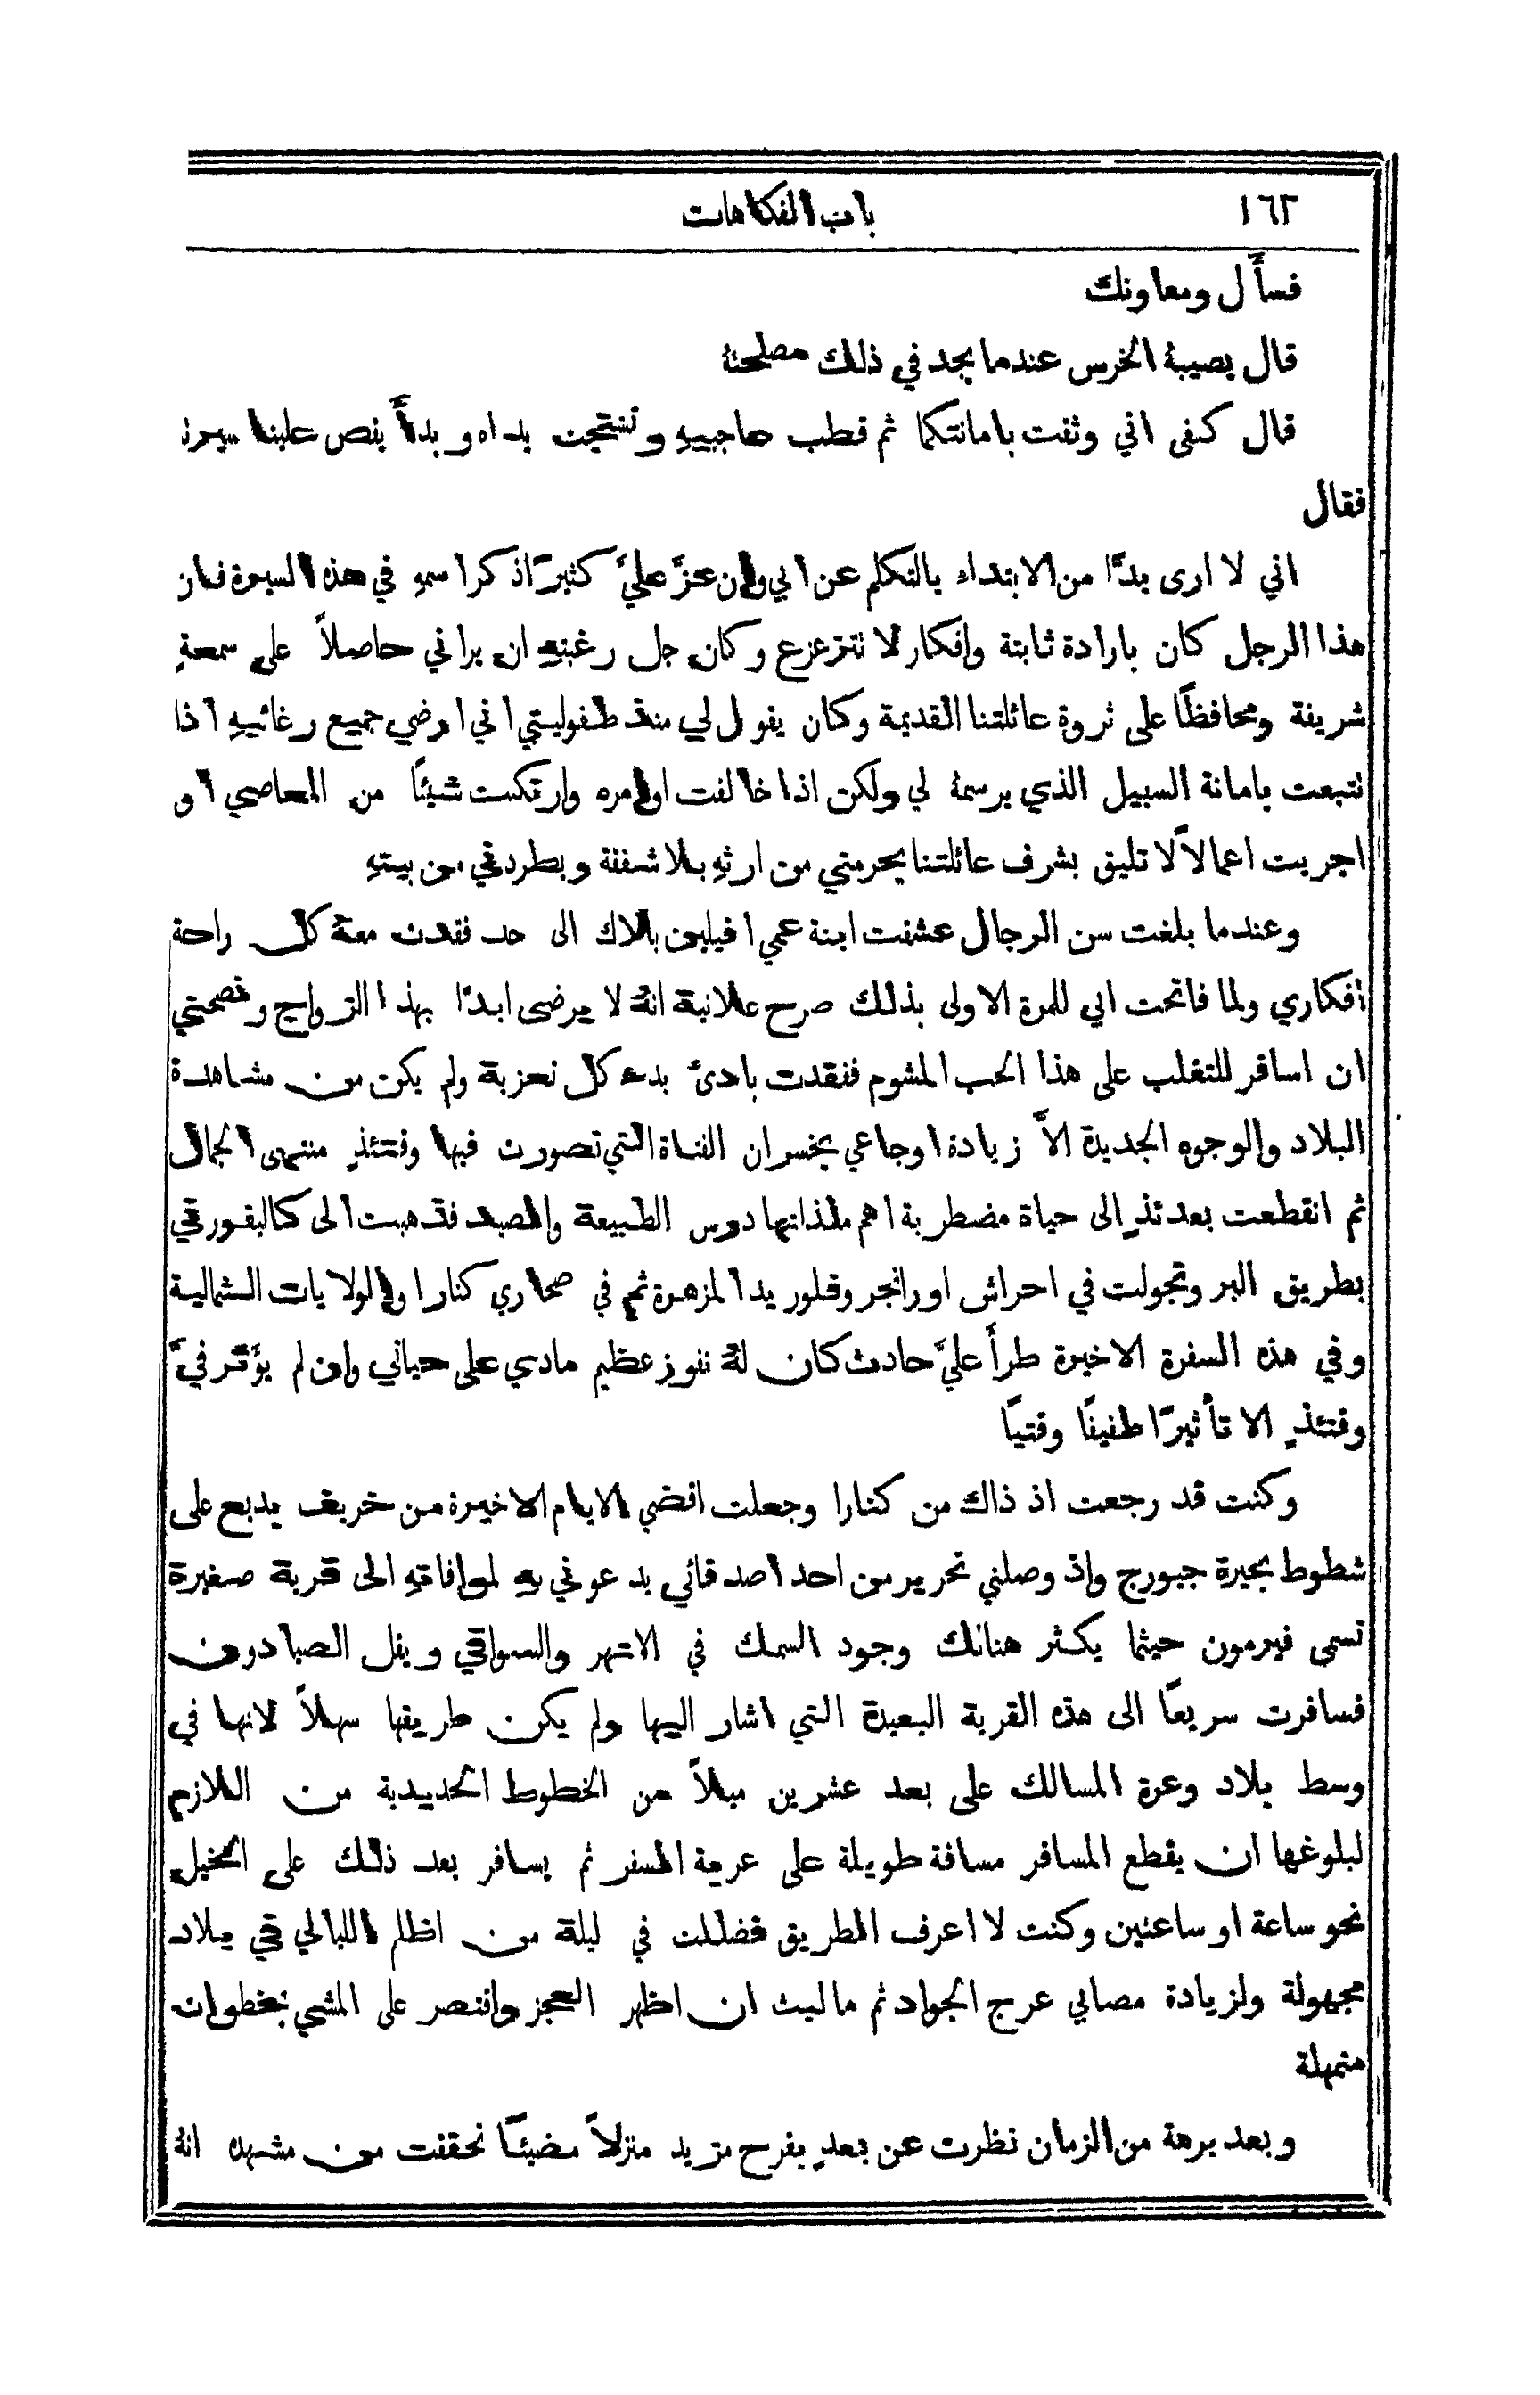 ١٦٢ باب الفكاهات
فسأل ومعاونك
قال يصيبهُ الخرس عندما يجد في ذلك مصلحتهُ
قال كفى اني وثقت بامانتكما ثم قطب حاجبيهِ وتشنجت يداه وبدأ يقص علينا سيرته
فقال
اني لا ارى بدًّا من الابتداء بالتكلم عن ابي وان عزَّ عليَّ كثيرًا ذكر اسمهِ في هذه السيرة فان
هذا الرجل كان بارادة ثابتة وافكار لا تتزعزع وكان جل رغبتهِ ان يراني حاصلاً على سمعةٍ
شريفة ومحافظًا على ثروة عائلتنا القديمة وكان يقول لي منذ طفوليتي اني ارضي جميع رغائبهِ اذا
تتبعت بامانة السبيل الذي يرسمهُ لي ولكن اذا خالفت اوامره وارتكبت شيئًا من المعاصي او
اجريت اعمالاً لا تليق بشرف عائلتنا يحرمني من ارثهِ بلا شفقة ويطردني من بيتهِ
وعندما بلغت سن الرجال عشقت ابنة عمي افيلين بالاك الى حد فقدت معهُ كل راحة
افكاري ولما فاتحت ابي للمرة الاولى بذلك صرح علانية انهُ لا يرضى ابدًا بهذا الزواج ونصحني
ان اسافر للتغلب على هذا الحب المشوم ففقدت بادئ بدء كل تعزية ولم يكن من مشاهدة
البلاد والوجوه الجديدة الاَّ زيادة اوجاعي بخسران الفتاة التي تصورت فيها وقتئذٍ منتهى الجمال
ثم انقطعت بعدئذٍ الى حياة مضطربة اهم ملذاتها درس الطبيعة والصيد فذهبت الى كاليفورني
بطريق البر وتجولت في احراش اورانجر وفلوريدا المزهرة ثم في صحاري كنارا والولايات الشمالية
وفي هذه السفرة الاخيرة طرأ عليَّ حادث كان لهُ نفوذ عظيم مادي على حياتي وان لم يؤثر فيَّ
وقتئذٍ الا تأثيرًا طفيفًا وقتيًا
وكنت قد رجعت اذ ذاك من كنارا وجعلت اقضي الايام الاخيرة من خريف بديع على
شطوط بحيرة جيورج واذ وصلني تحرير من احد اصدقائي يدعوني بهِ لموافاتهِ الى قرية صغيرة
تسمى فيرمون حيثما يكثر هنالك وجود السمك في الانهر والسواقي ويقل الصيادون
فسافرت سريعًا الى هذه القرية البعيدة التي اشار اليها ولم يكن طريقها سهلاً لانها في
وسط بلاد وعرة المسالك على بعد عشرين ميلاً من الخطوط الحديدية من اللازم
لبلوغها ان يقطع المسافر مسافة طويلة على عربة السفر ثم يسافر بعد ذلك على الخيل
نحو ساعة او ساعتين وكنت لا اعرف الطريق فضللت في ليلة من اظلم الليالي في بلاد
مجهولة ولزيادة مصابي عرج الجواد ثم ما لبث ان اظهر العجز واقتصر على المشي بخطوات
متمهلة
وبعد برهة من الزمان نظرت عن بعدٍ بفرح مزيد منزلاً مضيئًا تحققت من مشهده انهُ